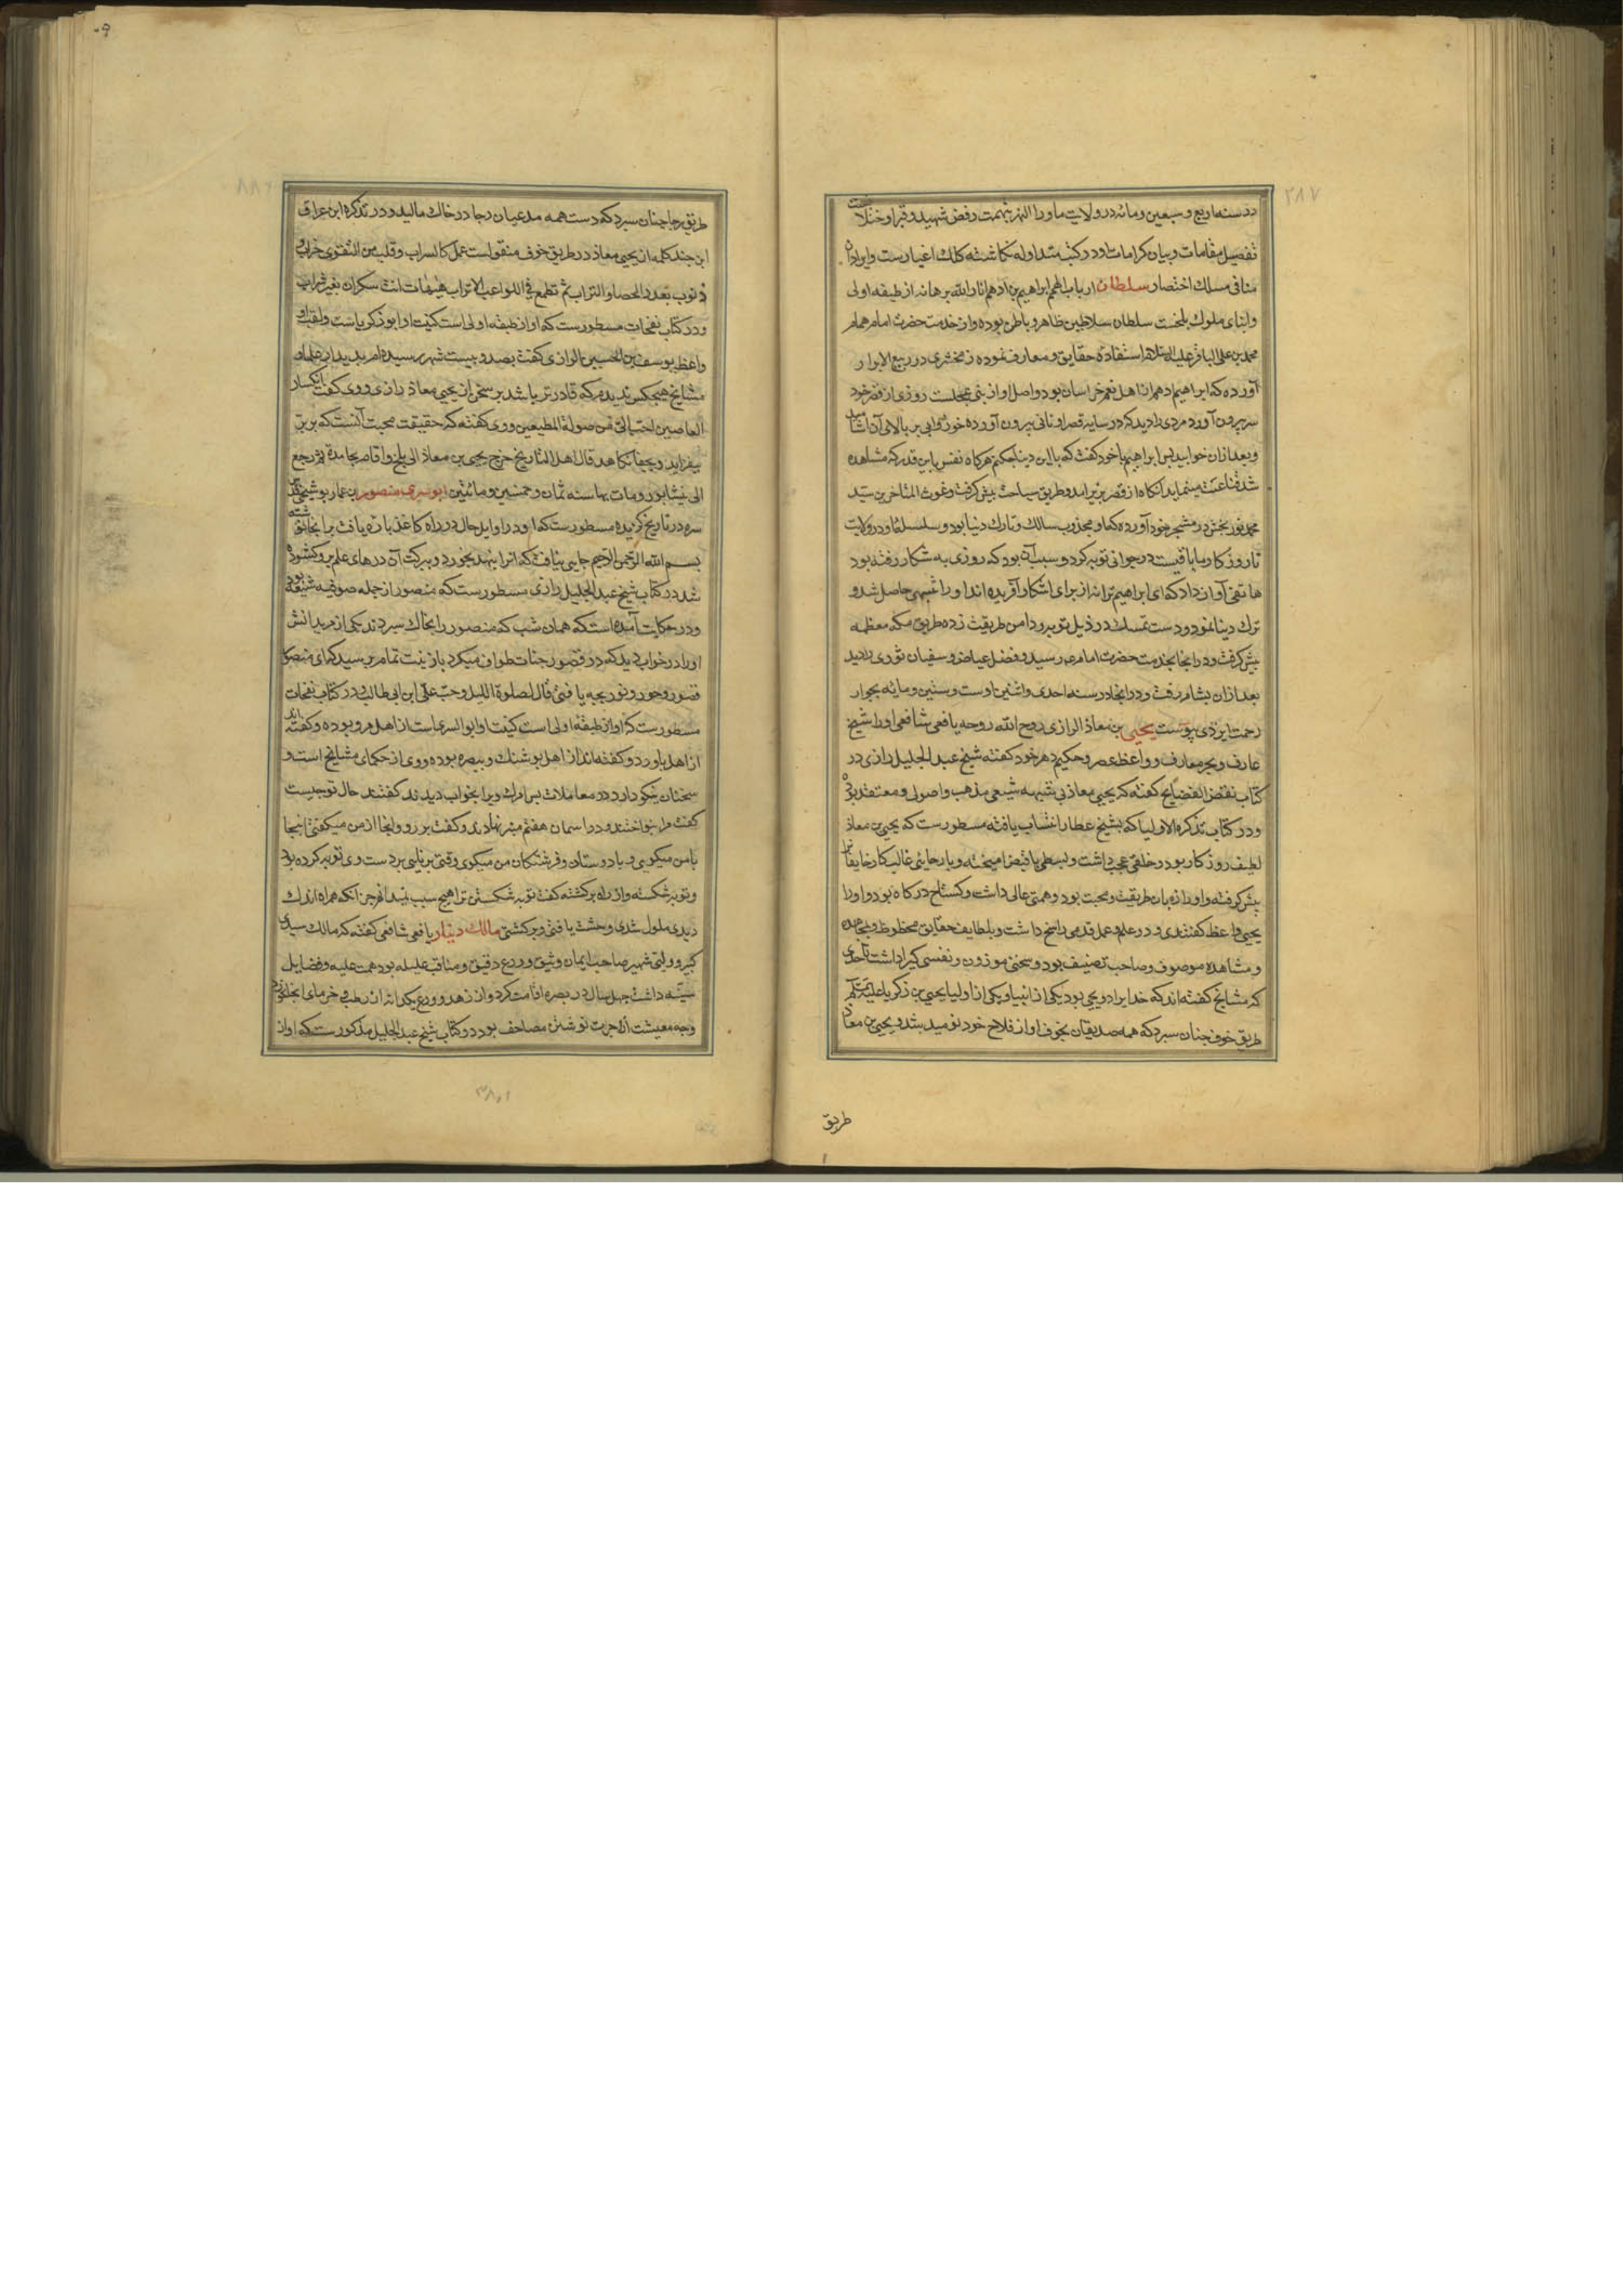 ۲۸۷
در سنه اربع و سبعین و مائه در ولایت ماوراء النهر بتهمت رفض شهید و قبر او ختلا نست
تفصیل مقامات و بیان کرامات او در کتب متداوله نکاشته کلک اغیارست و ایراد آن
منافی مسلک اختصار سلطان ارباب الهمم ابراهیم بن ادهم انار الله برهانه از طبقه اولی
و ابنای ملوک بلخست سلطان سلاطین ظاهر و باطن بوده و از خدمت حضرت امام همام
محمد بن علی الباقر علیه السلام استفاده حقایق و معارف نموده زمخشری در ربیع الابرار
آورده که ابراهیم ادهم از اهل نعم خراسان بود و اصل او از بنی عجلست روزی از قصر خود
سر بیرون آورد مردی را دید که در سایه قصر او نانی بیرون آورده خورد و آبی بر بالای آن
و بعد از آن خوابید پس ابراهیم با خود کفت که با این دنیا چکنم هرکاه نفس باین قدر که مشاهده
شد قناعت مینماید آنکاه از قصر بزیر امد و طریق سیاحت پیش کرفت و غوث المتاخرین سید
محمد نوربخش در مشجر خود آورده که او مجذوب سالک و تارک دنیا بود و سلسله او در ولایت
تا روزکار ما باقیست در جوانی توبه کرد و سبب آن بود که روزی به شکار رفته بود
هاتفی آواز داد که ای ابراهیم ترا نه از برای اشکار آفریده اند او را تنبیهی حاصل شد و
ترک دنیا نمود و دست تمسک در ذیل توبه و دامن طریقت زده طریق مکه معظمه
پیش کرفت و در انجا بخدمت حضرت امام عم رسید و فضل عیاض و سفیان ثوری را دید
بعد از ان بشام رفت و در انجا در سنه احدی و اثنین او ست و ستین و مائه بجوار
رحمت ایزدی پوست یحیی بن معاذ الرازی روح الله روحه یافعی شافعی او را شیخ
عارف و بحر معارف و واعظ عصر و حکیم دهر خود کفته شیخ عبد الجلیل رازی در
کتاب نقض الفضایح کفته که یحیی معاذ بی شبهه شیعی مذهب و اصولی و معتقد بوده
و در کتاب تذکره الاولیا که بشیخ عطار انتساب یافته مسطورست که یحیی بن معاذ
لطیف روزکار بود در خلقی عجب داشت و بسطی با قبض امیخته و با رجایی غالب کار خایفان
پیش کرفته و او را زبان طریقت و محبت بود و همتی عالی داشت و کستاخ درکاه بود و او را
یحیی واعظ کفتندی و در علم و عمل قدمی راسخ داشت و بلطایف حقایق محظوظ و بمجاهده
و مشاهده موصوف و صاحب تصنیف بود و سخنی موزون و نفسی کیرا داشت تا حدی
که مشایخ کفته اند که خدایرا دو یحیی بود یکی از انبیا و یکی از اولیا یحیی بن زکریا علیه السلام
طریق خوف چنان سپرد که همه صدیقان بخوف او از فلاح خود نومید شد و یحیی بن معاذ
طریق
طریق رجا چنان سپرد که دست همه مدعیان رجا در خاک مالید و در تذکره ابن عراق
این چند کلمه از یحیی معاذ در طریق خوف منقولست عمل کالسراب و قلب من التقوی خراب و
ذنوب بعدد الحصا و التراب ثم تطمع فی الکواعب الاتراب هیهات انت سکران بغیر شراب
و در کتاب نفحات مسطورست که او از طبقه اولی است کنیت او ابو زکریا ست و لقب او
واعظ یوسف بن الحسین الرازی کفت بصد و بیست شهر رسیده ام بدیدار علما و
مشایخ هیچکس ندیدم که قادرتر باشد بر سخن از یحیی معاذ رازی و وی کفت انکسار
العاصین احب الی من صولة المطیعین و وی کفته که حقیقت محبت آنست که ببر
بیفزاید و بجفا نکاهد قال اهل التاریخ خرج یحیی بن معاذ الی بلخ و اقام بها مدة ثم رجع
الی نیشابور و مات بها سنه ثمان و خمسین و مائتین ابو سری منصور بن عمار بوشنجی قدس
سره در تاریخ کزیده مسطورست که او در اوایل حال در راه کاغذ پاره یافت بر انجا نوشته
بسم الله الرحمن الرحیم جایی نیافت که انرا بنهد بخورد و ببرکت آن درهای علم برو کشوده
شد در کتاب شیخ عبد الجلیل رازی مسطورست که منصور از جمله صوفیه شیعه بود
و در حکایت آمده است که همان شب که منصور را بخاک سپردند یکی از مریدانش
او را در خواب دید که در قصور جنات طواف میکرد با زینت تمام پرسید که ای منصور
قصور و حور و نور بچه یا فتی قال بصلوة اللیل و حب علی ابن ابی طالب و در کتاب نفحات
مسطورست که او از طبقه اولی است کنیت او ابو السری است از اهل مرو بوده و کفته اند
از اهل باورد و کفته اند از اهل بوشنک و ببصره بوده و وی از حکمای مشایخ است و
سخنان نیکو دارد در معاملات پس از مرک ویرا بخواب دیدند کفتند حال تو چیست
کفت مرا بنواختند و در اسمان هفتم منبر نهادند و کفت برو و انجا از من میکفتی اینجا
با من میکویی و با دوستان و فرشتکان من میکوی وقتی برنایی بر دست وی توبه کرده بود
و توبه شکسته و از راه برکشته کفت توبه شکستن ترا هیچ سبب نمیدانم جز انکه همراه اندک
دیدی ملول شدی و وحشت یا فتی و برکشتی مالک دینار یافعی شافعی کفته که مالک سیدی
کبیر و ولیی شهیر صاحب ایمان وثیق و ورع دقیق و مناقب علیله بود همت علیه و فضایل
سنیه داشت چهل سال در بصره اقامت کرد و از زهد و ورع یکدانه از رطب و خرمای انجا نخورد
وجه معیشت از اجرت نوشتن مصاحف بود در کتاب شیخ عبد الجلیل مذکورست که او از